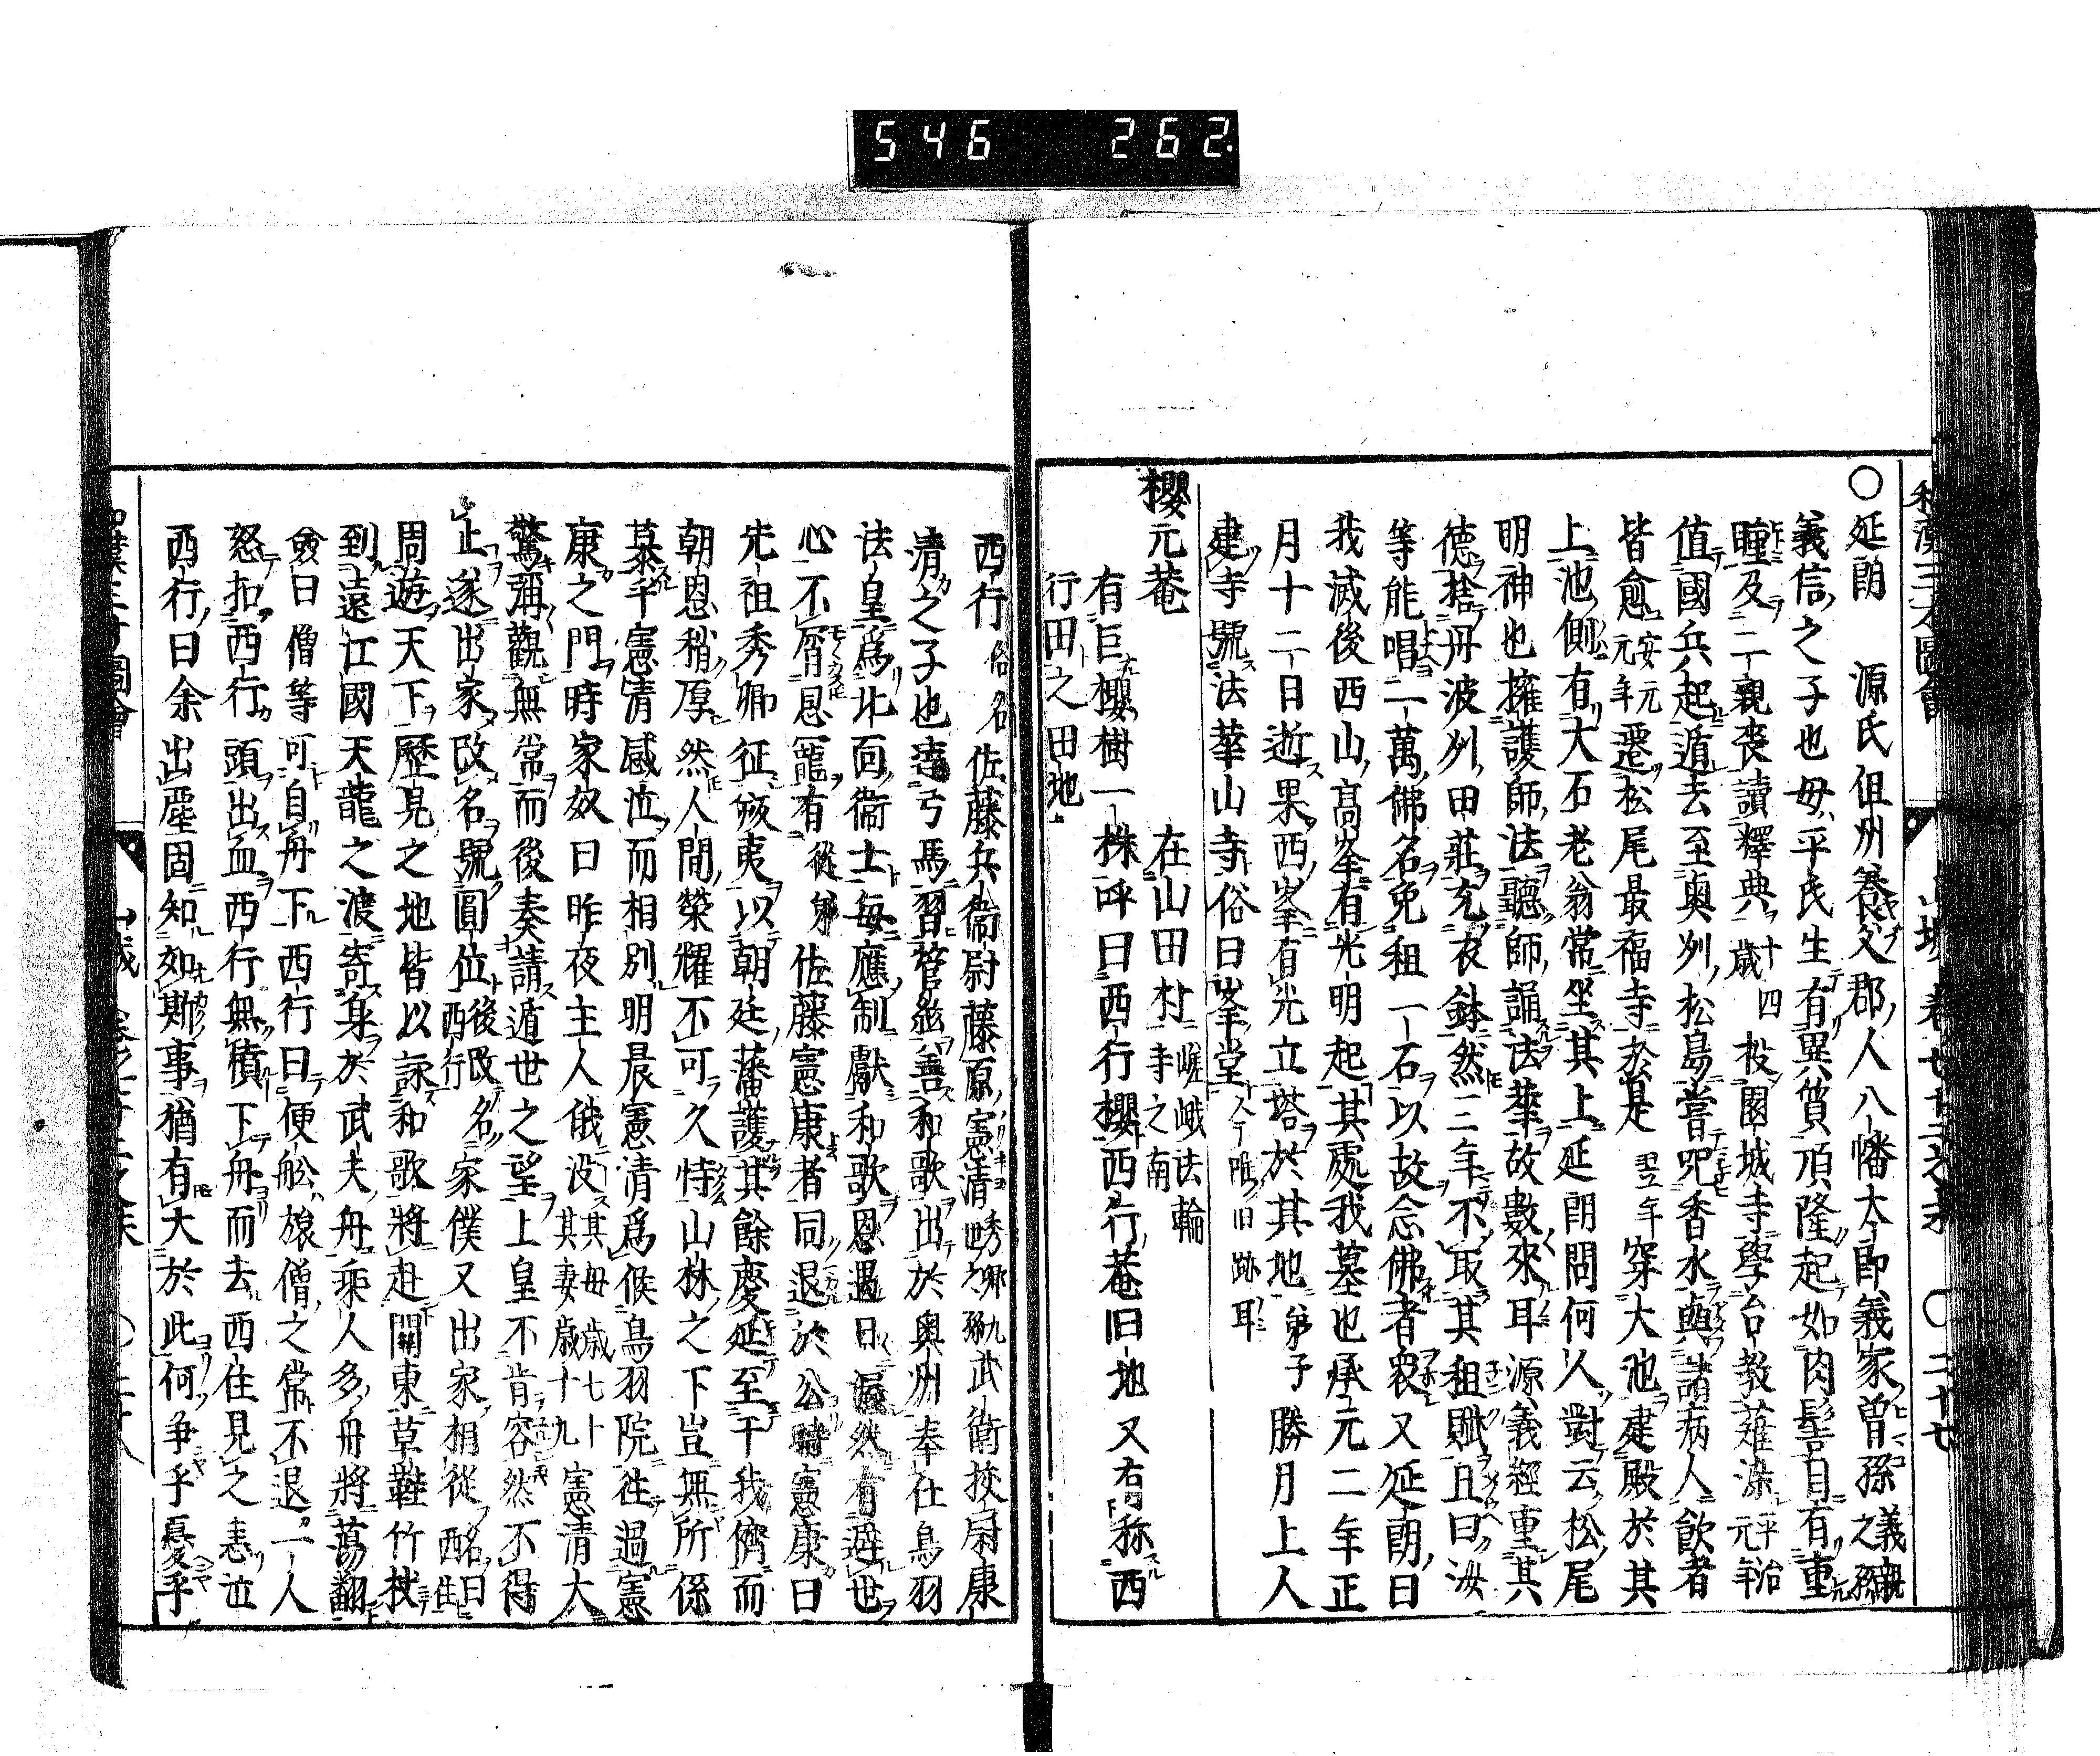 546 262.
和漢三才圖會 山城 卷七十二之末 〇二十七
〇延朗 源氏但州養父郡人八幡太郎義家曾孫義親之孫
義信之子也母平氏生有異質頂隆起如肉髻目有重
瞳及二親喪讀釋典十四歲投園城寺學台教薙染平治元年
值國兵起遁去至奥州松島嘗咒香水與諸病人飲者
皆愈安元元年遷松尾最福寺於是翌年穿大池建殿於其
上池側有大石老翁常坐其上延朗問何人對云松尾
明神也擁護師法聽師誦法華故數來耳源義經重其
德捨丹波州田莊充衣鉢然三年不取其租賦且曰汝
等能唱一萬佛名免租一石以故念佛者衆又延朗曰
我滅後西山高峯有光明起其處我墓也承元二年正
月十二日逝果西峯有光立塔於其地弟子勝月上人
建寺號法華山寺俗曰峯堂今唯旧跡耳
櫻元菴 在山田村嵯峨法輪寺之南
有巨櫻樹一株呼曰西行櫻西行菴旧地又右稱西
行田之田地
西行 俗名佐藤兵衞尉藤原憲清秀郷九世之孫武衛校尉康
清之子也達弓馬習管絃善和歌出於奥州奉仕鳥羽
法皇爲北面衞士每應制獻和歌恩遇日渥然有遯世
心不屑恩寵有從弟佐藤憲康者同退於公憲康曰
先祖秀郷征夷以朝廷藩護其餘慶延至于我儕而
朝恩稍厚然人間榮耀不可久恃山林之下豈無所係
慕乎憲清感泣而相別明晨憲清爲候鳥羽院往過憲
康之門時家奴曰昨夜主人俄没其母歲七十其妻歲十九憲清大
驚彌觀無常而後奏請遁世之望上皇不肯容然不得
止遂出家改名號圓位後改西行名家僕又出家相從名曰西住
周遊天下歷見之地皆以詠和歌將赴關東草鞋竹杖
到遠江國天龍之渡寄身於武夫舟乘人多舟將蕩翻
僉曰僧等可自舟下西行曰便舩旅僧之常不退一人
怒扣西行頭出血西行無憤下舟而去西住見之恚泣
西行曰余出塵固知如斯事猶有大於此何争乎憂乎
和漢三才圖會 山城 卷之七十二之末 〇二十八